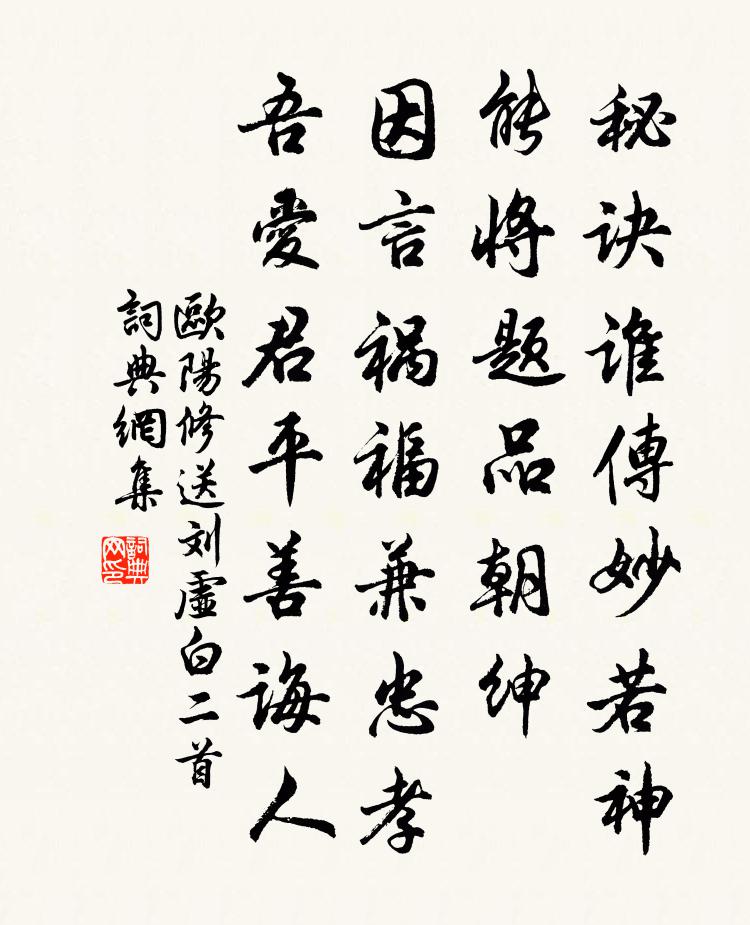 秘诀谁傳妙若神
能将题品朝绅
因言祸福兼忠孝
吾愛君平善诲人
歐陽修送刘虛白二首
詞典網集
詞典网印